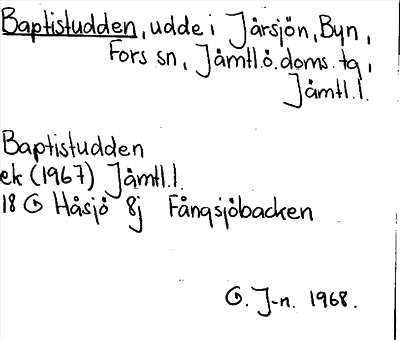 Baptistudden, udde i Jårsjön, Byn,
Fors sn, Jämtl.ö.doms.tg,
Jämtl.l.
Baptistudden
ek (1967) Jämtl.l.
18 G Håsjö 8j Fångsjöbacken
G. J-n. 1968.